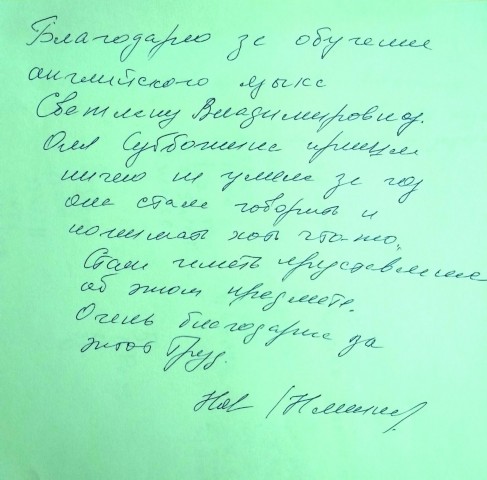 Благодарю за обучение
английского языка
Светлану Владимировну.
Оля Субботина пришла
ничего не умела за год
она стала говорить и
понимать хоть что-то,
Стала иметь представление
об этом предмете.
Очень благодарна за
этот Труд.